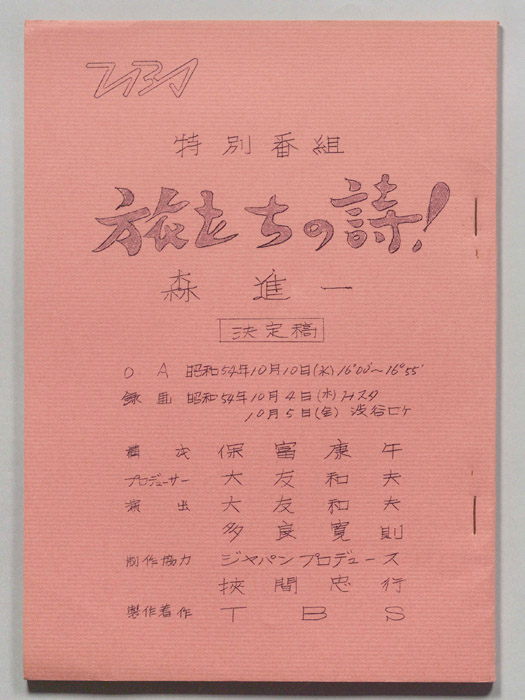 TBS
特別番組
旅立ちの詩!
森進一
決定稿
O A 昭和54年10月10日(水)16°00'~16°55'
録画 昭和54年10月4日(木)Hスタ
10月5日(金)渋谷ロケ
構成 保富康午
プロデューサー 大友和夫
演出 大友和夫
多良寛則
制作協力 ジャパンプロデュース
挾間忠行
製作著作 TBS